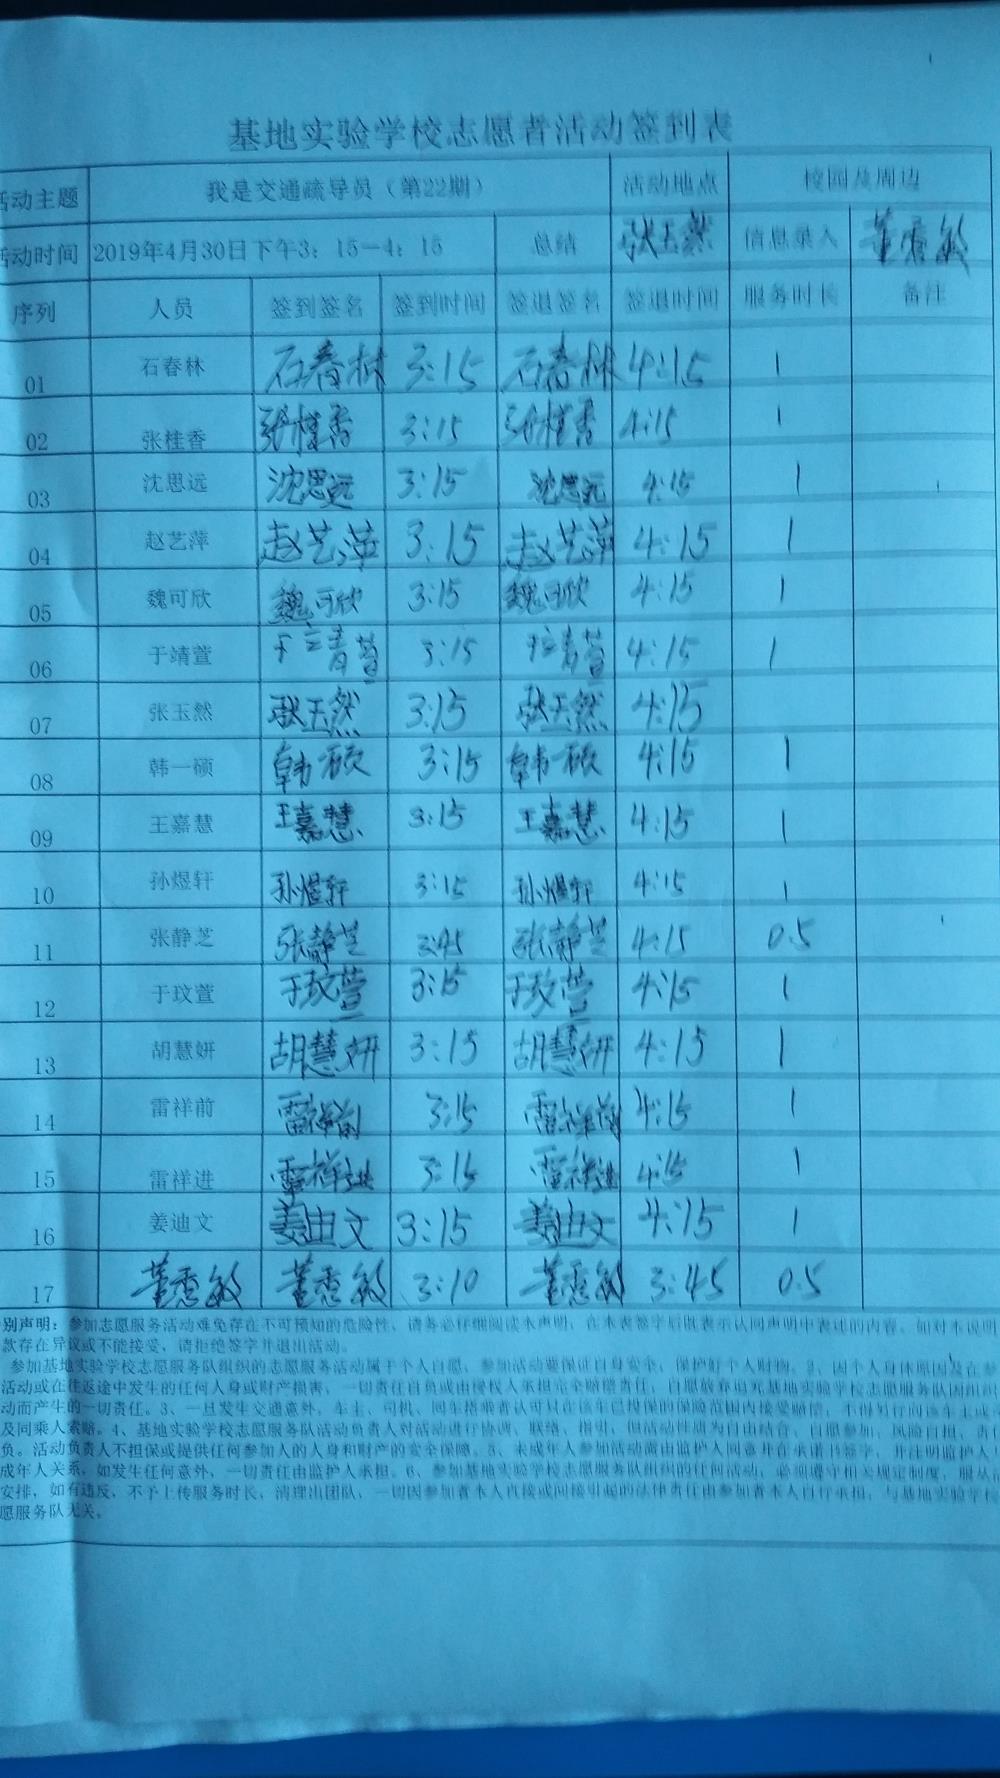 基地实验学校志愿者活动签到表
活动主题 我是交通疏导员（第22期） 活动地点 校园及周边
活动时间 2019年4月30日下午3：15—4：15 总结 张玉然 信息录入 董秀敏
序列 人员 签到签名 签到时间 签退签名 签退时间 服务时长 备注
01 石春林 石春林 3:15 石春林 4:15 1
02 张桂香 张桂香 3:15 张桂香 4:15 1
03 沈思远 沈思远 3:15 沈思远 4:15 1
04 赵艺萍 赵艺萍 3:15 赵艺萍 4:15 1
05 魏可欣 魏可欣 3:15 魏可欣 4:15 1
06 于靖萱 于靖萱 3:15 于靖萱 4:15 1
07 张玉然 张玉然 3:15 张玉然 4:15
08 韩一硕 韩一硕 3:15 韩一硕 4:15 1
09 王嘉慧 王嘉慧 3:15 王嘉慧 4:15 1
10 孙煜轩 孙煜轩 3:15 孙煜轩 4:15 1
11 张静芝 张静芝 3:45 张静芝 4:15 0.5
12 于玟萱 于玟萱 3:15 于玟萱 4:15 1
13 胡慧妍 胡慧妍 3:15 胡慧妍 4:15 1
14 雷祥前 雷祥前 3:15 雷祥前 4:15 1
15 雷祥进 雷祥进 3:15 雷祥进 4:15 1
16 姜迪文 姜迪文 3:15 姜迪文 4:15 1
17 董秀敏 董秀敏 3:10 董秀敏 3:45 0.5
别声明：参加志愿服务活动难免存在不可预知的危险性，请务必仔细阅读本声明，在本表签字后既表示认同声明中表述的内容。如对本说明
款存在异议或不能接受，请拒绝签字并退出活动。
参加基地实验学校志愿服务队组织的志愿服务活动属于个人自愿，参加活动要保证自身安全，保护好个人财物。2、因个人身体原因及在参
活动或在往返途中发生的任何人身或财产损害，一切责任自负或由侵权人承担完全赔偿责任，自愿放弃追究基地实验学校志愿服务队因组织
动而产生的一切责任。3、一旦发生交通意外，车主、司机、同车搭乘者认可只在该车已投保的保险范围内接受赔偿，不得另行向该车主或
及同乘人索赔。4、基地实验学校志愿服务队活动负责人对活动进行协调、联络、指引，但活动性质为自由结合、自愿参加、风险自担、责任
负。活动负责人不担保或提供任何参加人的人身和财产的安全保障。5、未成年人参加活动需由监护人同意并在承诺书签字，并注明监护人
成年人关系，如发生任何意外，一切责任由监护人承担。6、参加基地实验学校志愿服务队组织的任何活动，必须遵守相关规定制度，服从
安排，如有违反，不予上传服务时长，清理出团队，一切因参加者本人直接或间接引起的法律责任由参加者本人自行承担，与基地实验学校
愿服务队无关。